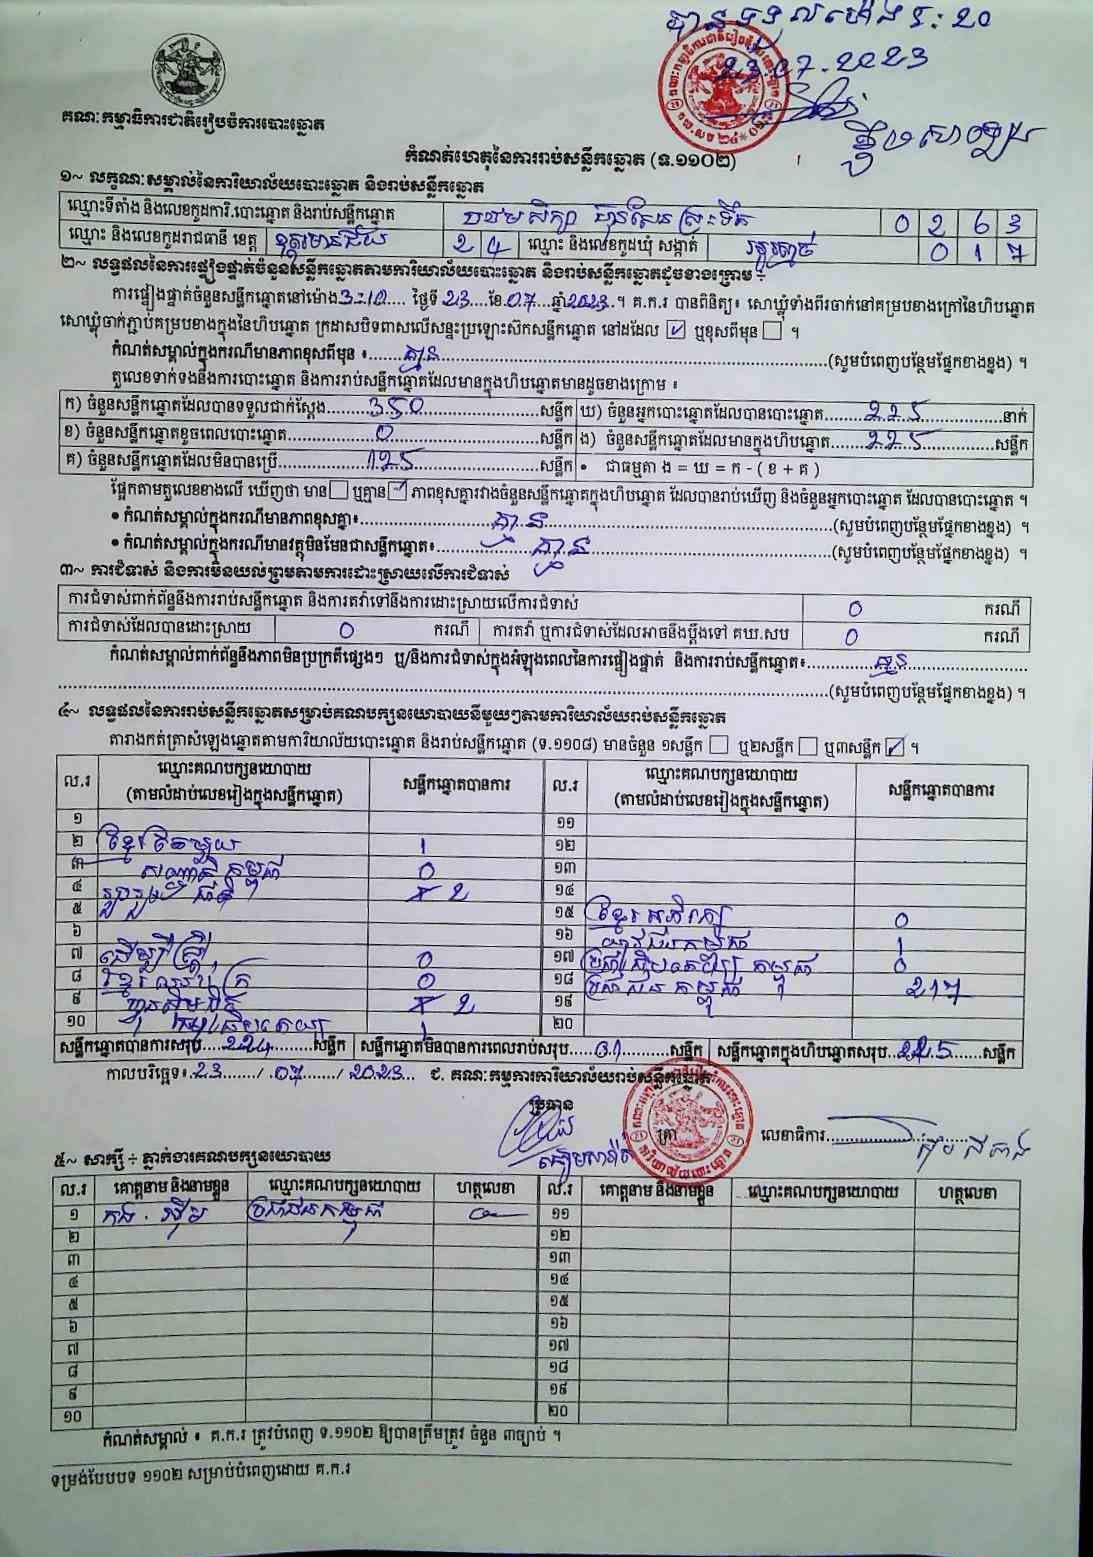 បានទទួលម៉ោង ៖ 20
23.07.2023
គណៈកម្មាធិការជាតិរៀបចំការបោះឆ្នោត
កំណត់ហេតុនៃការរាប់សន្លឹកឆ្នោត (ទ.១១០២)
១~ លក្ខណៈសម្គាល់នៃការិយាល័យបោះឆ្នោត និងរាប់សន្លឹកឆ្នោត
ឈ្មោះទីតាំង និងលេខកូដការិ.បោះឆ្នោត និងរាប់សន្លឹកឆ្នោត បឋមសិក្សា ហ៊ុនសែន 0 2 6 3
ឈ្មោះ និងលេខកូដរាជធានី ខេត្ត ឧត្តរមានជ័យ 2 4 ឈ្មោះ និងលេខកូដឃុំ សង្កាត់ 0 1 7
២~ លទ្ធផលនៃការផ្ទៀងផ្ទាត់ចំនួនសន្លឹកឆ្នោតតាមការិយាល័យបោះឆ្នោត និងរាប់សន្លឹកឆ្នោតដូចខាងក្រោម ÷
ការផ្ទៀងផ្ទាត់ចំនួនសន្លឹកឆ្នោតនៅម៉ោង 3:10 ថ្ងៃទី 23 ខែ 07 ឆ្នាំ 2023 ។ គ.ក.រ បានពិនិត្យ៖ សោឃ្លុំទាំងពីរចាក់នៅគម្របខាងក្រៅនៃហិបឆ្នោត
សោឃ្លុំចាក់ភ្ជាប់គម្របខាងក្នុងនៃហិបឆ្នោត ក្រដាសបិទពាសលើសន្ទះប្រឡោះស៊កសន្លឹកឆ្នោត នៅដដែល ☑ ឬខុសពីមុន ☐ ។
កំណត់សម្គាល់ក្នុងករណីមានភាពខុសពីមុន ៖ គ្មាន (សូមបំពេញបន្ថែមផ្នែកខាងខ្នង) ។
តួលេខទាក់ទងនឹងការបោះឆ្នោត និងការរាប់សន្លឹកឆ្នោតដែលមានក្នុងហិបឆ្នោតមានដូចខាងក្រោម ៖
ក) ចំនួនសន្លឹកឆ្នោតដែលបានទទួលជាក់ស្តែង 350 សន្លឹក ឃ) ចំនួនអ្នកបោះឆ្នោតដែលបានបោះឆ្នោត 225 នាក់
ខ) ចំនួនសន្លឹកឆ្នោតខូចពេលបោះឆ្នោត 0 សន្លឹក ង) ចំនួនសន្លឹកឆ្នោតដែលមានក្នុងហិបឆ្នោត 225 សន្លឹក
គ) ចំនួនសន្លឹកឆ្នោតដែលមិនបានប្រើ 125 សន្លឹក • ជាធម្មតា ង = ឃ = ក - ( ខ + គ )
ផ្អែកតាមតួលេខខាងលើ ឃើញថា មាន ☐ ឬគ្មាន ☑ ភាពខុសគ្នារវាងចំនួនសន្លឹកឆ្នោតក្នុងហិបឆ្នោត ដែលបានរាប់ឃើញ និងចំនួនអ្នកបោះឆ្នោត ដែលបានបោះឆ្នោត ។
• កំណត់សម្គាល់ក្នុងករណីមានភាពខុសគ្នា៖ គ្មាន (សូមបំពេញបន្ថែមផ្នែកខាងខ្នង) ។
• កំណត់សម្គាល់ក្នុងករណីមានវត្ថុមិនមែនជាសន្លឹកឆ្នោត៖ គ្មាន (សូមបំពេញបន្ថែមផ្នែកខាងខ្នង) ។
៣~ ការជំទាស់ និងការមិនយល់ព្រមតាមការដោះស្រាយលើការជំទាស់
ការជំទាស់ពាក់ព័ន្ធនឹងការរាប់សន្លឹកឆ្នោត និងការតវ៉ាទៅនឹងការដោះស្រាយលើការជំទាស់ 0 ករណី
ការជំទាស់ដែលបានដោះស្រាយ 0 ករណី ការតវ៉ា ឬការជំទាស់ដែលអាចនឹងប្តឹងទៅ គឃ.សប 0 ករណី
កំណត់សម្គាល់ពាក់ព័ន្ធនឹងភាពមិនប្រក្រតីផ្សេងៗ ឬ/និងការជំទាស់ក្នុងអំឡុងពេលនៃការផ្ទៀងផ្ទាត់ និងការរាប់សន្លឹកឆ្នោត៖ គ្មាន
(សូមបំពេញបន្ថែមផ្នែកខាងខ្នង) ។
៤~ លទ្ធផលនៃការរាប់សន្លឹកឆ្នោតសម្រាប់គណបក្សនយោបាយនីមួយៗតាមការិយាល័យរាប់សន្លឹកឆ្នោត
តារាងកត់ត្រាសំឡេងឆ្នោតតាមការិយាល័យបោះឆ្នោត និងរាប់សន្លឹកឆ្នោត (ទ.១១០៨) មានចំនួន ១សន្លឹក ☐ ឬ២សន្លឹក ☐ ឬ៣សន្លឹក ☑ ។
ល.រ ឈ្មោះគណបក្សនយោបាយ (តាមលំដាប់លេខរៀងក្នុងសន្លឹកឆ្នោត) សន្លឹកឆ្នោតបានការ ល.រ ឈ្មោះគណបក្សនយោបាយ (តាមលំដាប់លេខរៀងក្នុងសន្លឹកឆ្នោត) សន្លឹកឆ្នោតបានការ
១ ១១
២ ខ្មែរតែមួយ 1 ១២
៣ កម្ពុជា 0 ១៣
៤ 2 ១៤
៥ ១៥ ខ្មែរអភិរក្ស 0
៦ ១៦ 1
៧ 0 ១៧ កម្ពុជា 0
៨ ខ្មែរ 0 ១៨ ប្រជាជនកម្ពុជា 217
៩ ហ្វ៊ុនស៊ិនប៉ិច 2 ១៩
១០ 1 ២០
សន្លឹកឆ្នោតបានការសរុប 224 សន្លឹក សន្លឹកឆ្នោតមិនបានការពេលរាប់សរុប 01 សន្លឹក សន្លឹកឆ្នោតក្នុងហិបឆ្នោតសរុប 225 សន្លឹក
កាលបរិច្ឆេទ៖ 23 / 07 / 2023 ជ. គណៈកម្មការការិយាល័យរាប់សន្លឹកឆ្នោត
ប្រធាន
ត្រា លេខាធិការ
៥~ សាក្សី ÷ ភ្នាក់ងារគណបក្សនយោបាយ
ល.រ គោត្តនាម និងនាមខ្លួន ឈ្មោះគណបក្សនយោបាយ ហត្ថលេខា ល.រ គោត្តនាម និងនាមខ្លួន ឈ្មោះគណបក្សនយោបាយ ហត្ថលេខា
១ ប្រជាជនកម្ពុជា ១១
២ ១២
៣ ១៣
៤ ១៤
៥ ១៥
៦ ១៦
៧ ១៧
៨ ១៨
៩ ១៩
១០ ២០
កំណត់សម្គាល់ ៖ គ.ក.រ ត្រូវបំពេញ ទ.១១០២ ឱ្យបានត្រឹមត្រូវ ចំនួន ៣ច្បាប់ ។
ទម្រង់បែបបទ ១១០២ សម្រាប់បំពេញដោយ គ.ក.រ